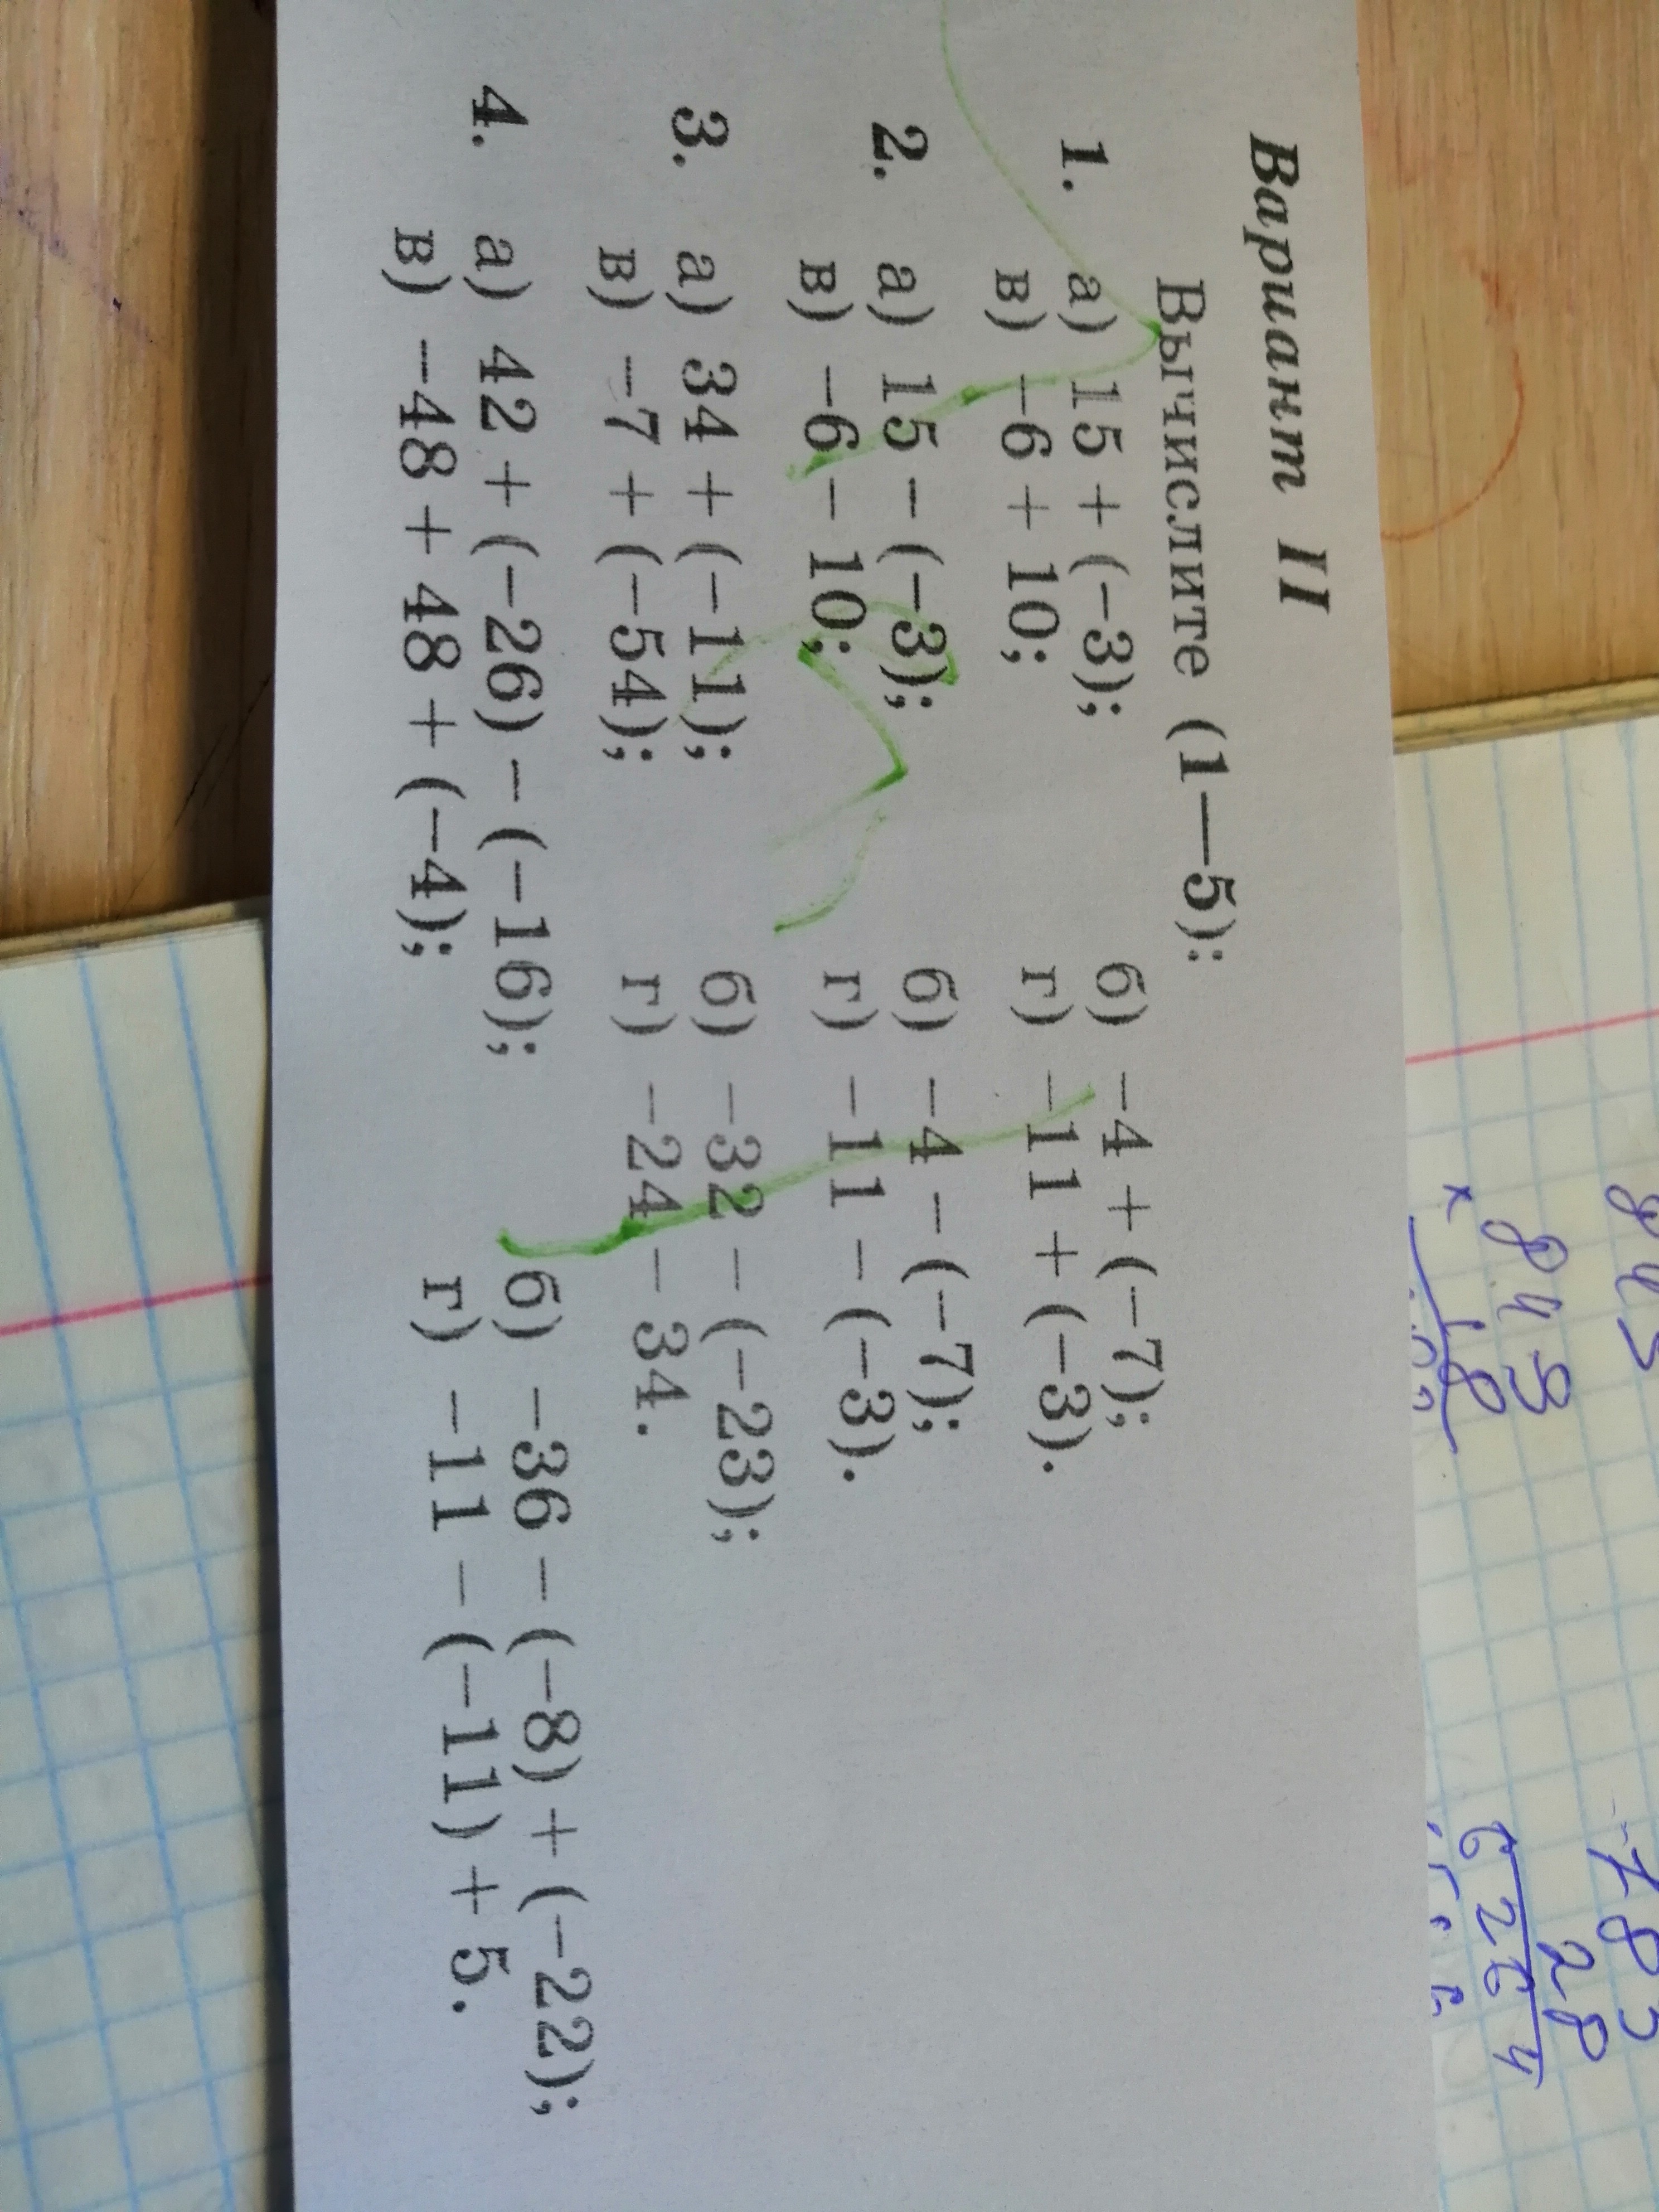 Вариант II
Вычислите (1—5):
1. а) 15 + (−3); б) −4 + (−7);
в) −6 + 10; г) −11 + (−3).
2. а) 15 − (−3); б) −4 − (−7);
в) −6 − 10; г) −11 − (−3).
3. а) 34 + (−11); б) −32 − (−23);
в) −7 + (−54); г) −24 − 34.
4. а) 42 + (−26) − (−16); б) −36 − (−8) + (−22);
в) −48 + 48 + (−4); г) −11 − (−11) + 5.